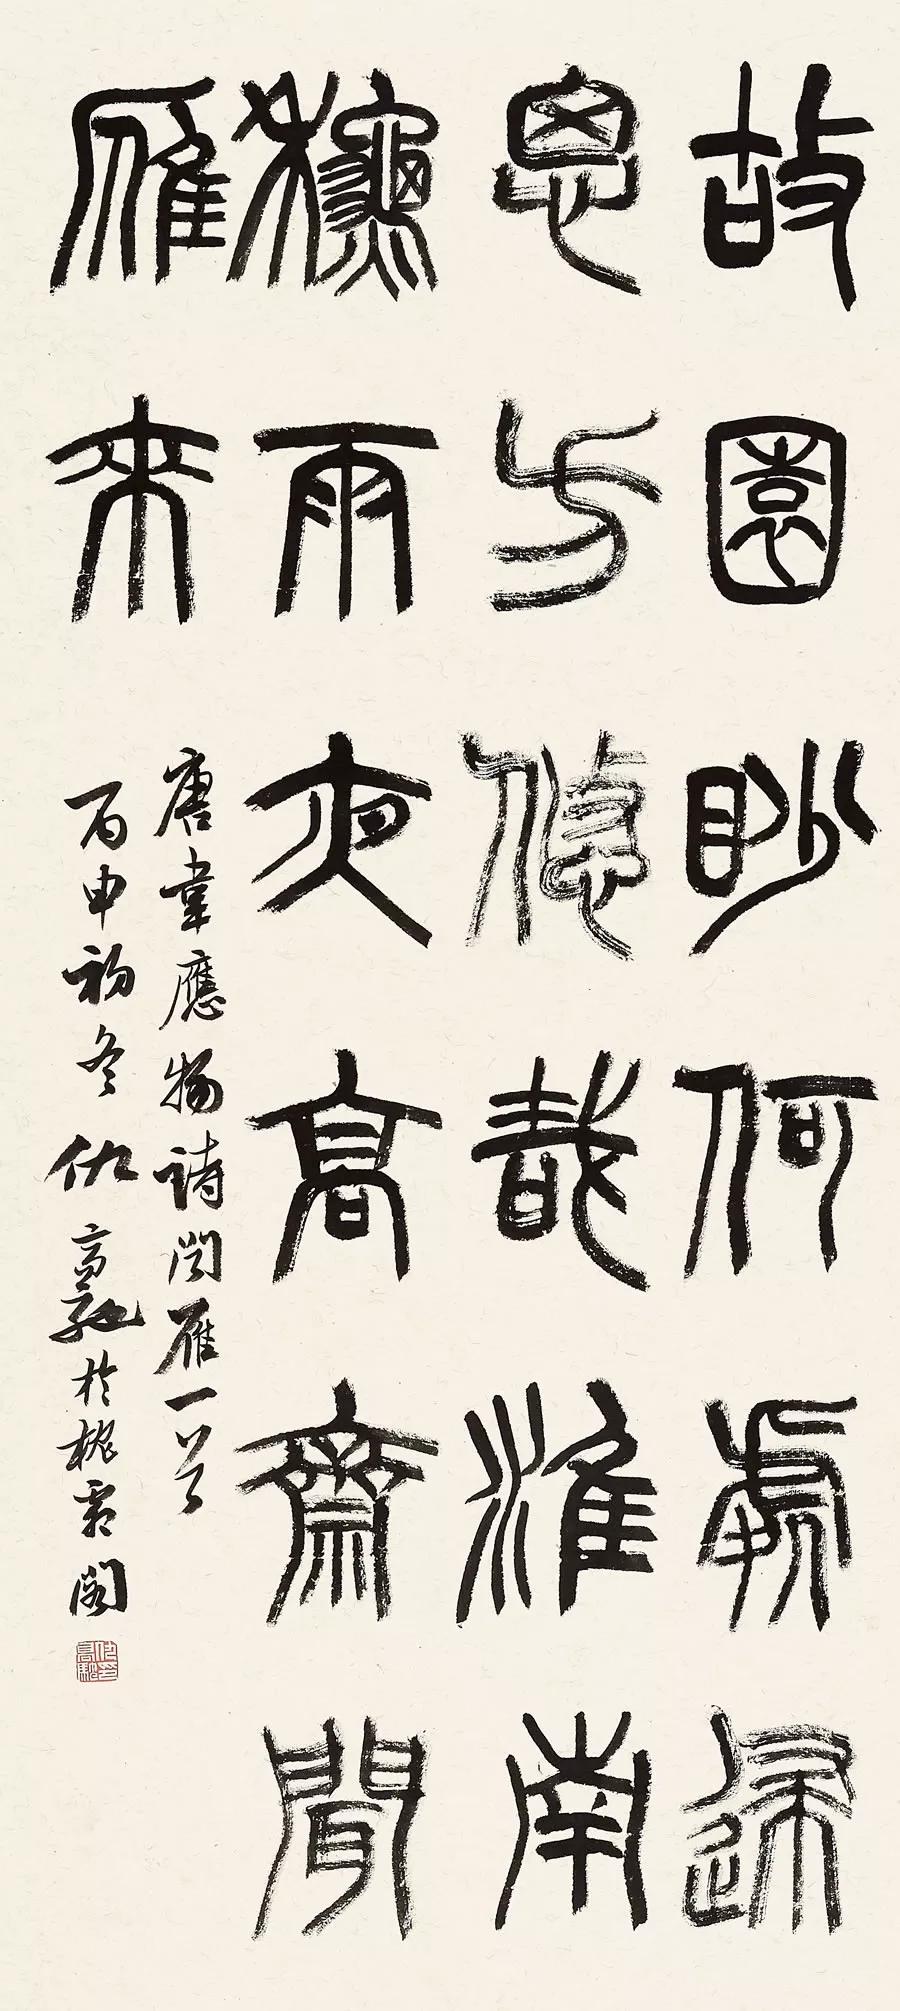 故園眇何處歸
思方悠哉淮南
龝雨夜高齋聞
雁来
唐韋應物詩聞雁一首
丙申初冬仇高馳於槐霜閣